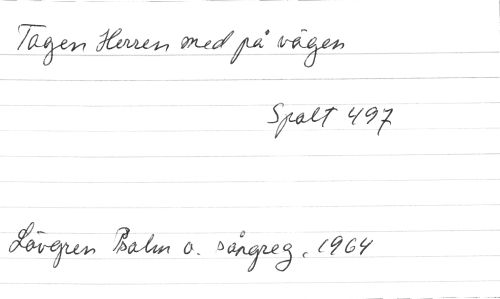 Tagen Herren med på vägen
Spalt 497
Lövgren Psalm o. sångreg. 1964